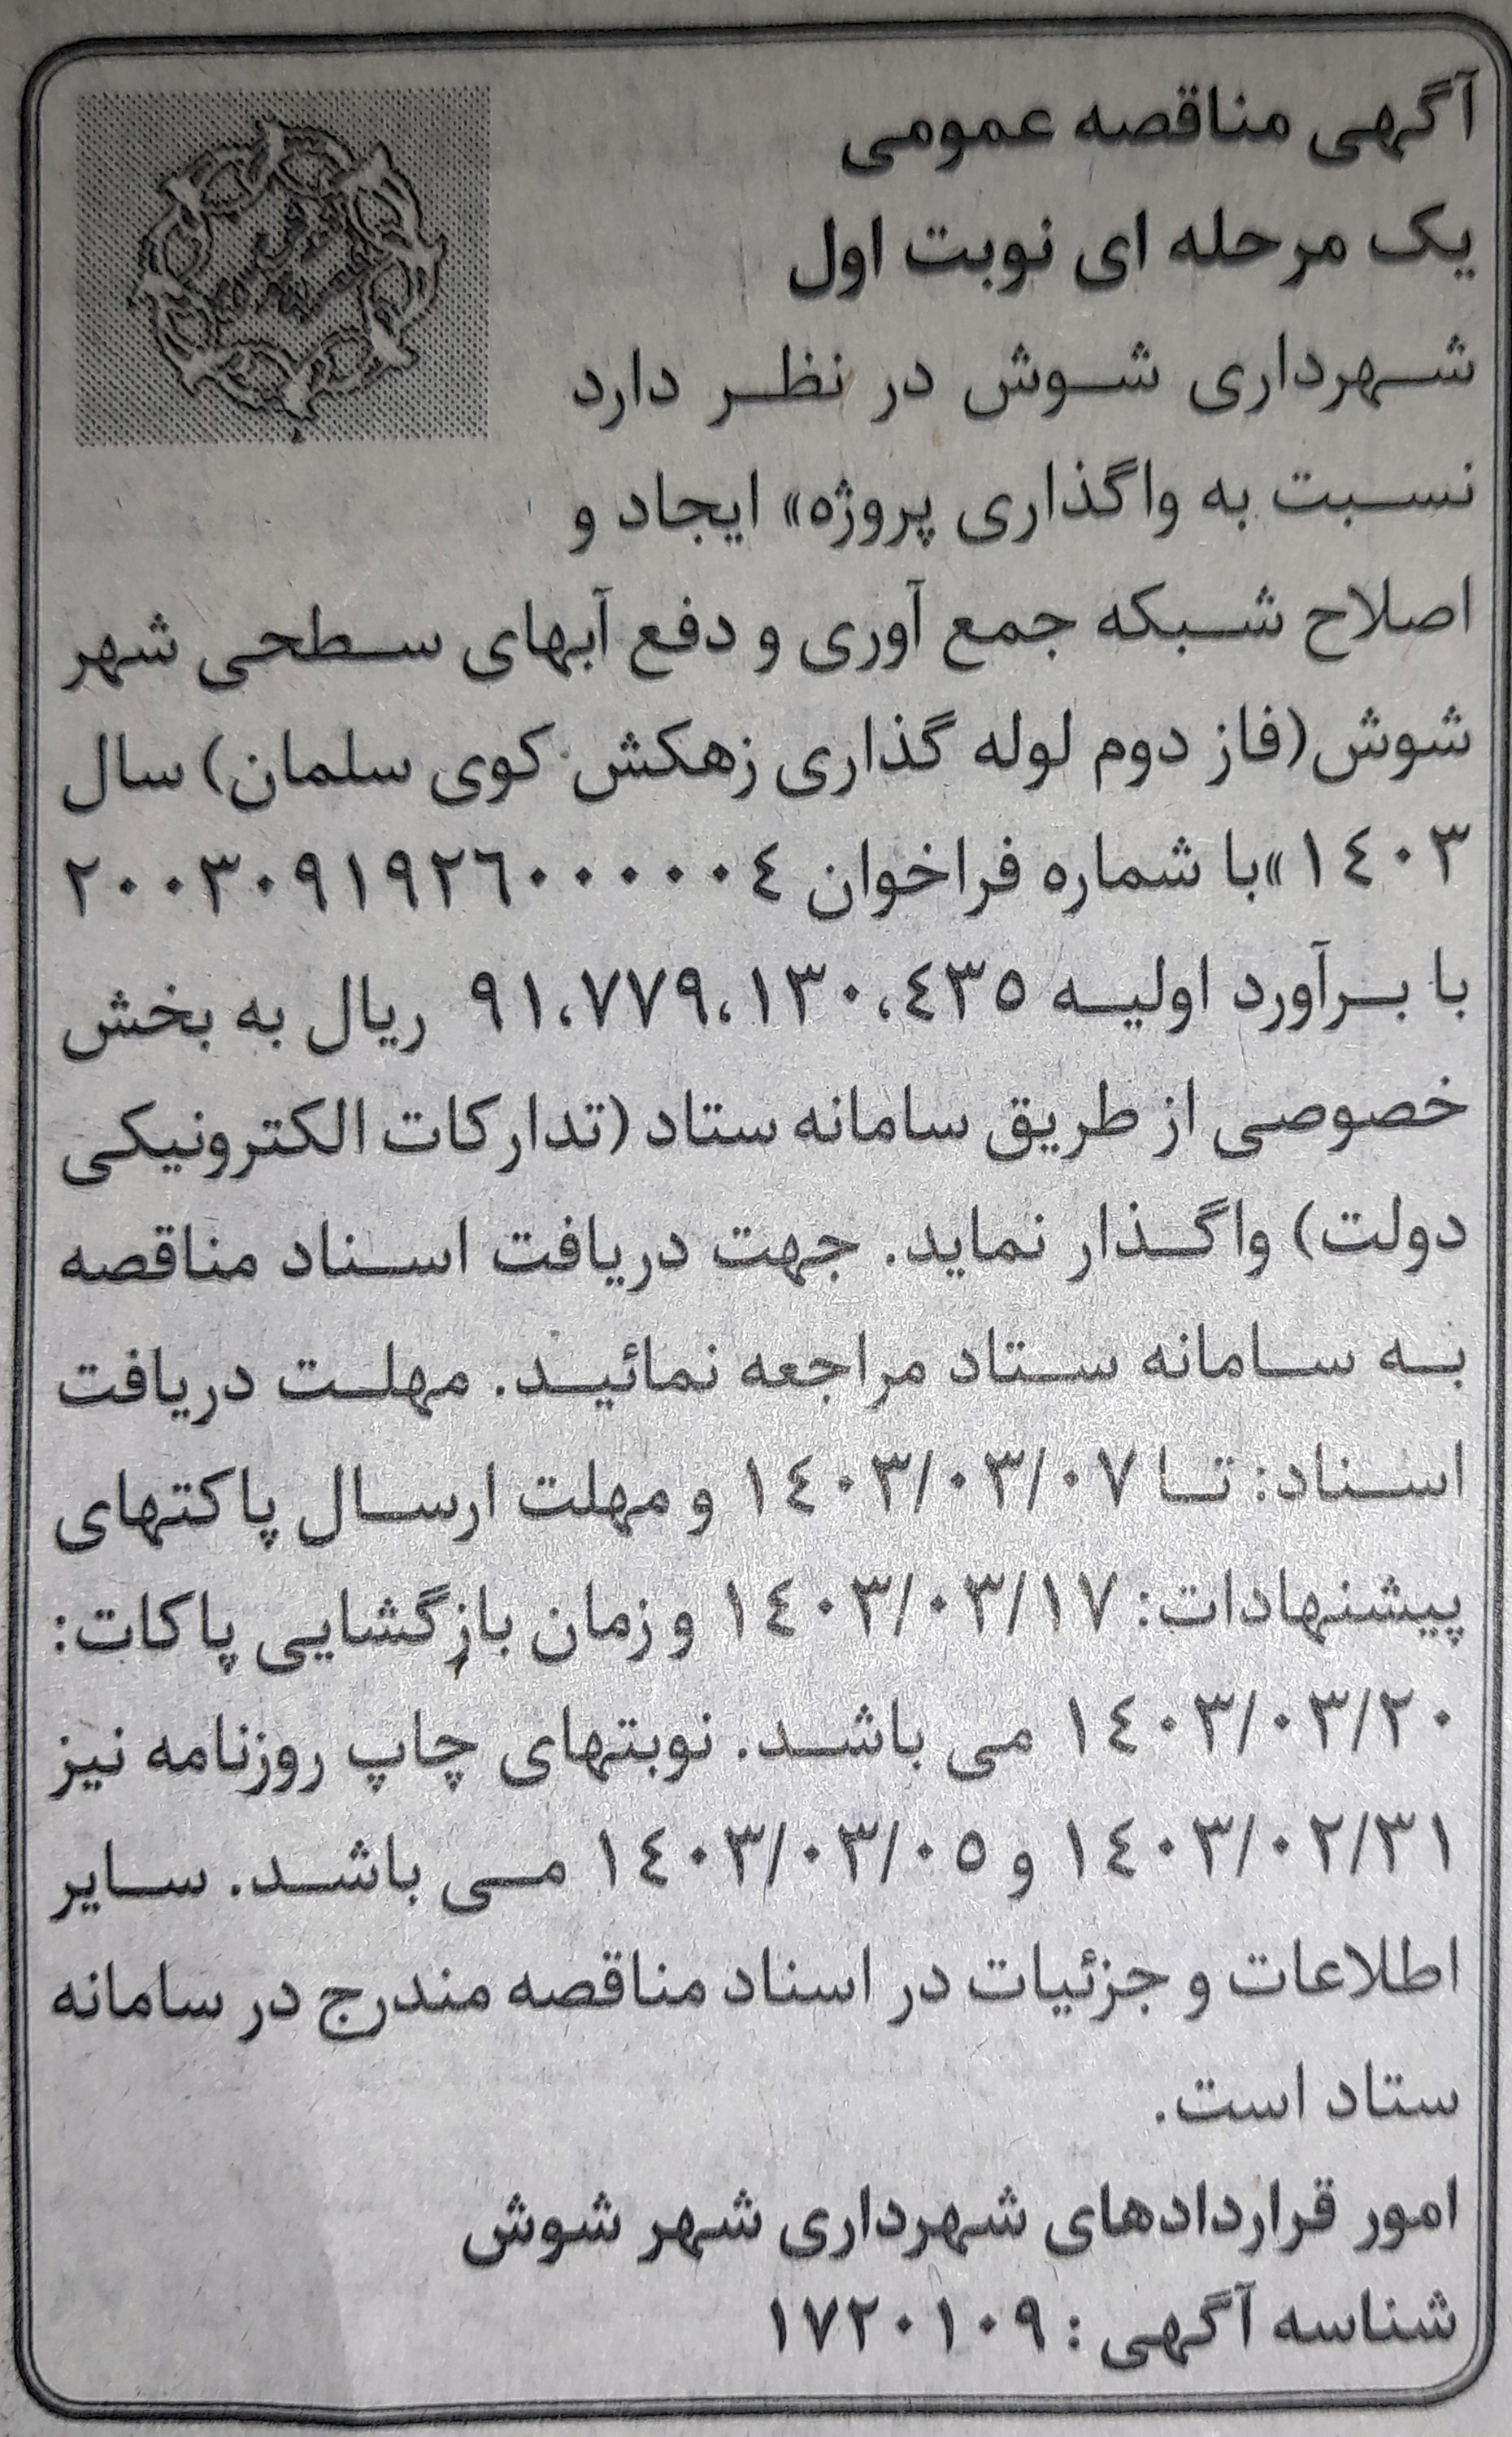 آگهی مناقصه عمومی
یک مرحله ای نوبت اول
شهرداری شوش در نظر دارد
نسبت به واگذاری پروژه» ایجاد و
اصلاح شبکه جمع آوری و دفع آبهای سطحی شهر
شوش(فاز دوم لوله گذاری زهکش کوی سلمان) سال
١٤٠٣ »با شماره فراخوان ٢٠٠٣٠٩١٩٢٦٠٠٠٠٠٤
با برآورد اولیه ٩١،٧٧٩،١٣٠،٤٣٥ ریال به بخش
خصوصی از طریق سامانه ستاد (تدارکات الکترونیکی
دولت) واگذار نماید. جهت دریافت اسناد مناقصه
به سامانه ستاد مراجعه نمائید. مهلت دریافت
اسناد: تا ١٤٠٣/٠٣/٠٧ و مهلت ارسال پاکتهای
پیشنهادات: ١٤٠٣/٠٣/١٧ و زمان بازگشایی پاکات:
١٤٠٣/٠٣/٢٠ می باشد. نوبتهای چاپ روزنامه نیز
١٤٠٣/٠٢/٣١ و ١٤٠٣/٠٣/٠٥ می باشد. سایر
اطلاعات و جزئیات در اسناد مناقصه مندرج در سامانه
ستاد است.
امور قراردادهای شهرداری شهر شوش
شناسه آگهی : ١٧٢٠١٠٩